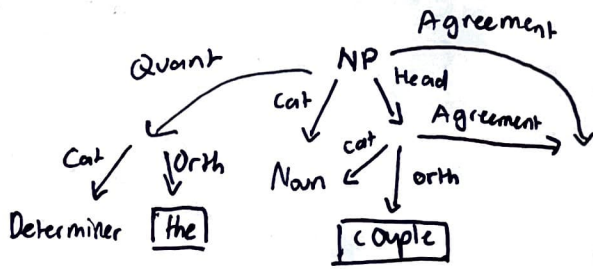 Agreement
Quant NP Head
Cat Agreement
Cat Orth cat
Noun orth
Determiner the
couple